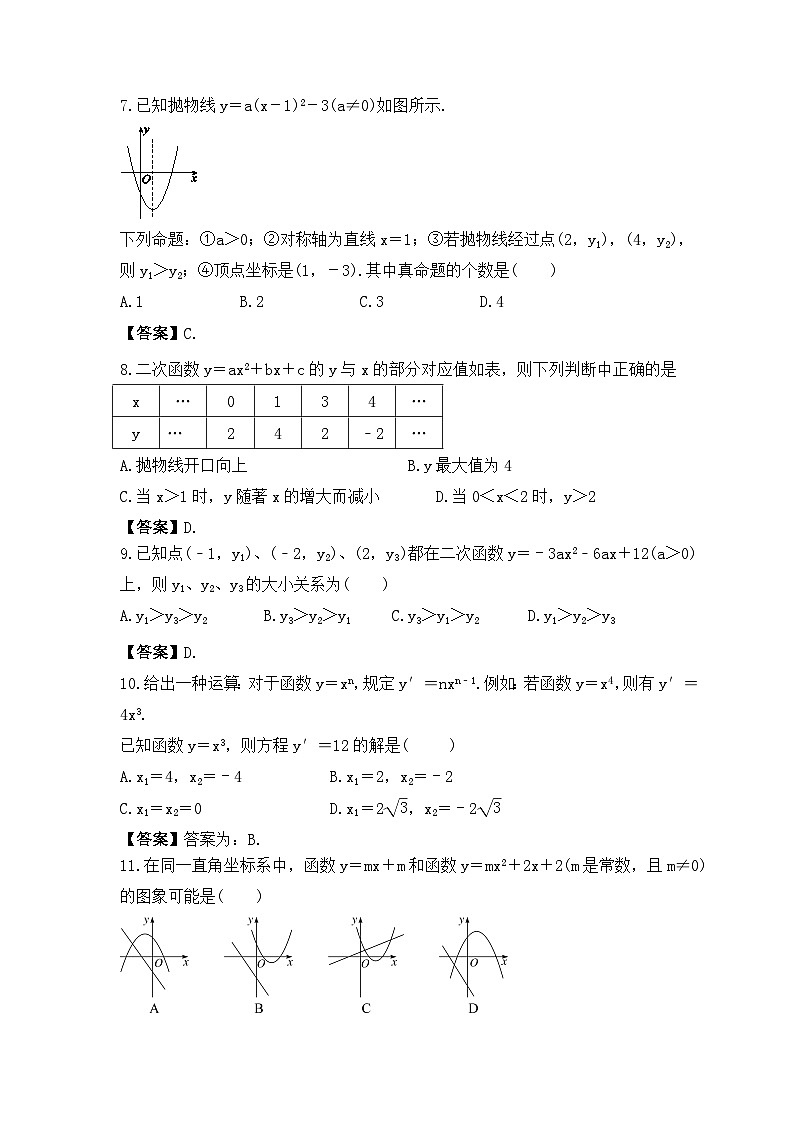 7.已知抛物线y＝a(x－1)²－3(a≠0)如图所示.
y
O
x
下列命题：①a＞0；②对称轴为直线x＝1；③若抛物线经过点(2，y₁)，(4，y₂)，
则y₁＞y₂；④顶点坐标是(1，﹣3).其中真命题的个数是(　　)
A.1 B.2 C.3 D.4
【答案】C.
8.二次函数y＝ax²＋bx＋c的y与x的部分对应值如表，则下列判断中正确的是
x … 0 1 3 4 …
y … 2 4 2 ﹣2 …
A.抛物线开口向上 B.y最大值为4
C.当x＞1时，y随著x的增大而减小 D.当0＜x＜2时，y＞2
【答案】D.
9.已知点(﹣1，y₁)、(﹣2，y₂)、(2，y₃)都在二次函数y＝﹣3ax²﹣6ax＋12(a＞0)
上，则y₁、y₂、y₃的大小关系为(　　)
A.y₁＞y₃＞y₂ B.y₃＞y₂＞y₁ C.y₃＞y₁＞y₂ D.y₁＞y₂＞y₃
【答案】D.
10.给出一种运算：对于函数y＝xⁿ，规定y′＝nxⁿ﹣¹.例如：若函数y＝x⁴，则有y′＝
4x³.
已知函数y＝x³，则方程y′＝12的解是(　　)
A.x₁＝4，x₂＝﹣4 B.x₁＝2，x₂＝﹣2
C.x₁＝x₂＝0 D.x₁＝2√3，x₂＝﹣2√3
【答案】答案为：B.
11.在同一直角坐标系中，函数y＝mx＋m和函数y＝mx²＋2x＋2(m是常数，且m≠0)
的图象可能是(　　)
y y y y
O x O x O x O x
A B C D